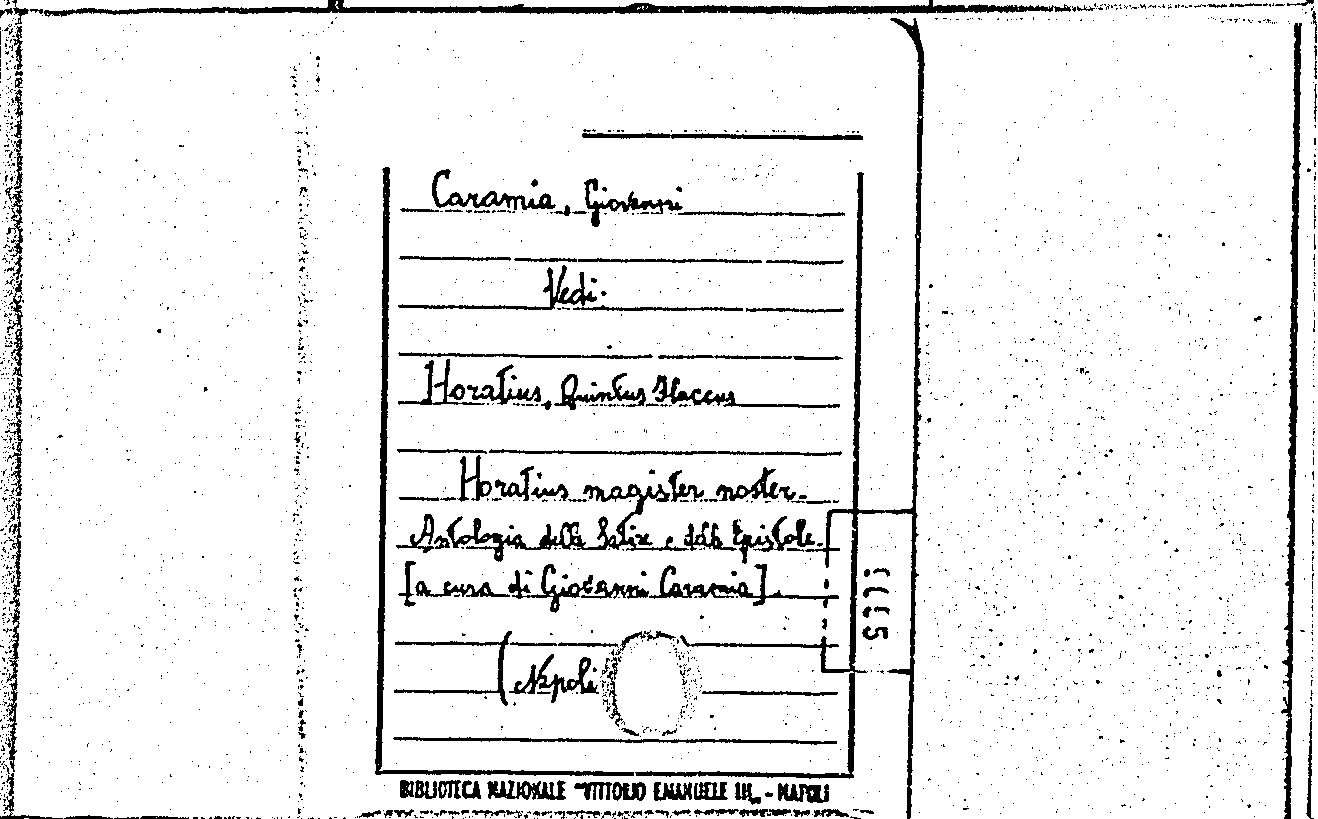 Caramia, Giovanni
Vedi:
Horatius, Quintus Flaccus
Horatius magister noster.
Antologia delle Satire e delle Epistole.
[a cura di Giovanni Caramia].
(Napoli
BIBLIOTECA NAZIONALE "VITTORIO EMANUELE III„ - NAPOLI